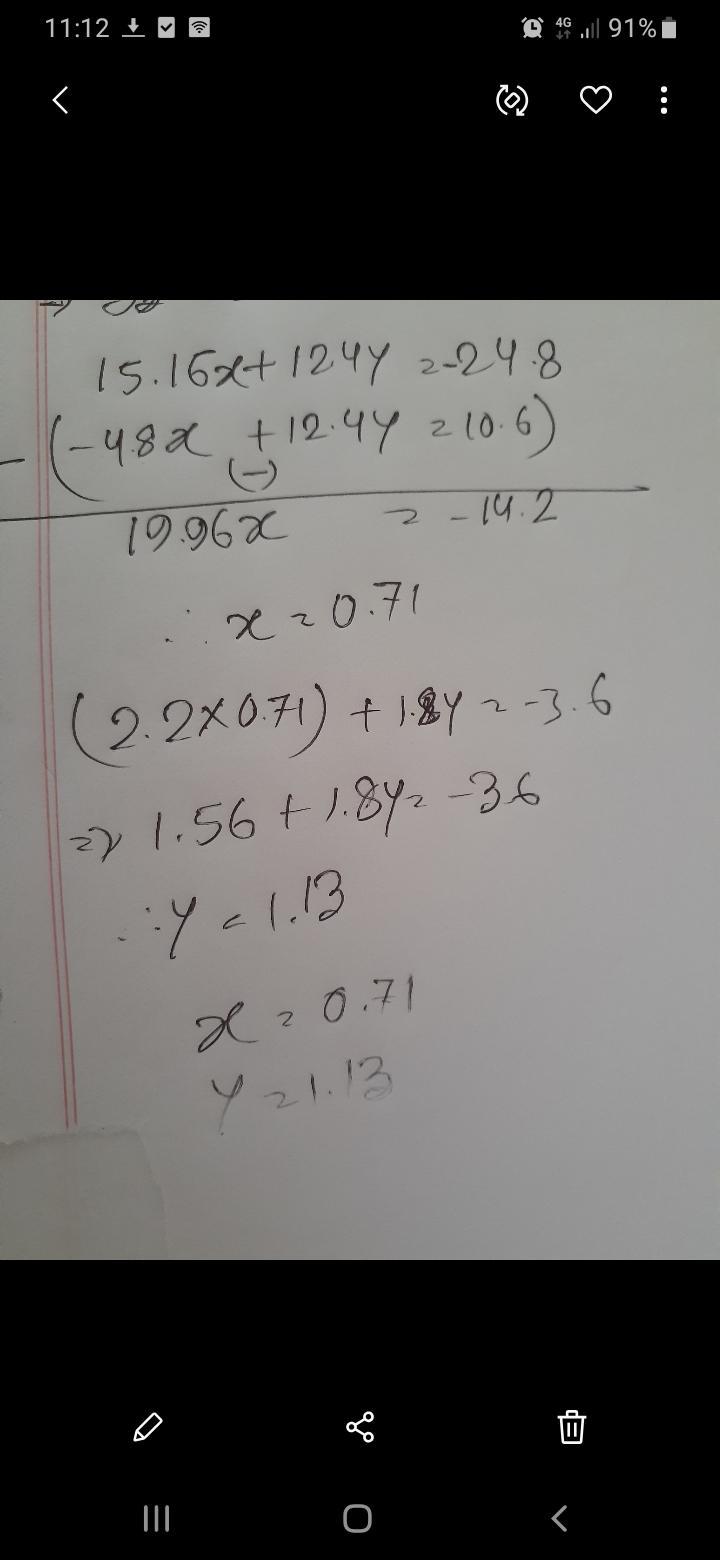 11:12 4G 91%
15.16x + 12.4y = -24.8
- (-4.8x + 12.4y = 10.6)
(-)
19.96x = -14.2
∴ x = 0.71
(2.2 × 0.71) + 1.8y = -3.6
=> 1.56 + 1.8y = -3.6
∴ y = 1.13
x = 0.71
y = 1.13